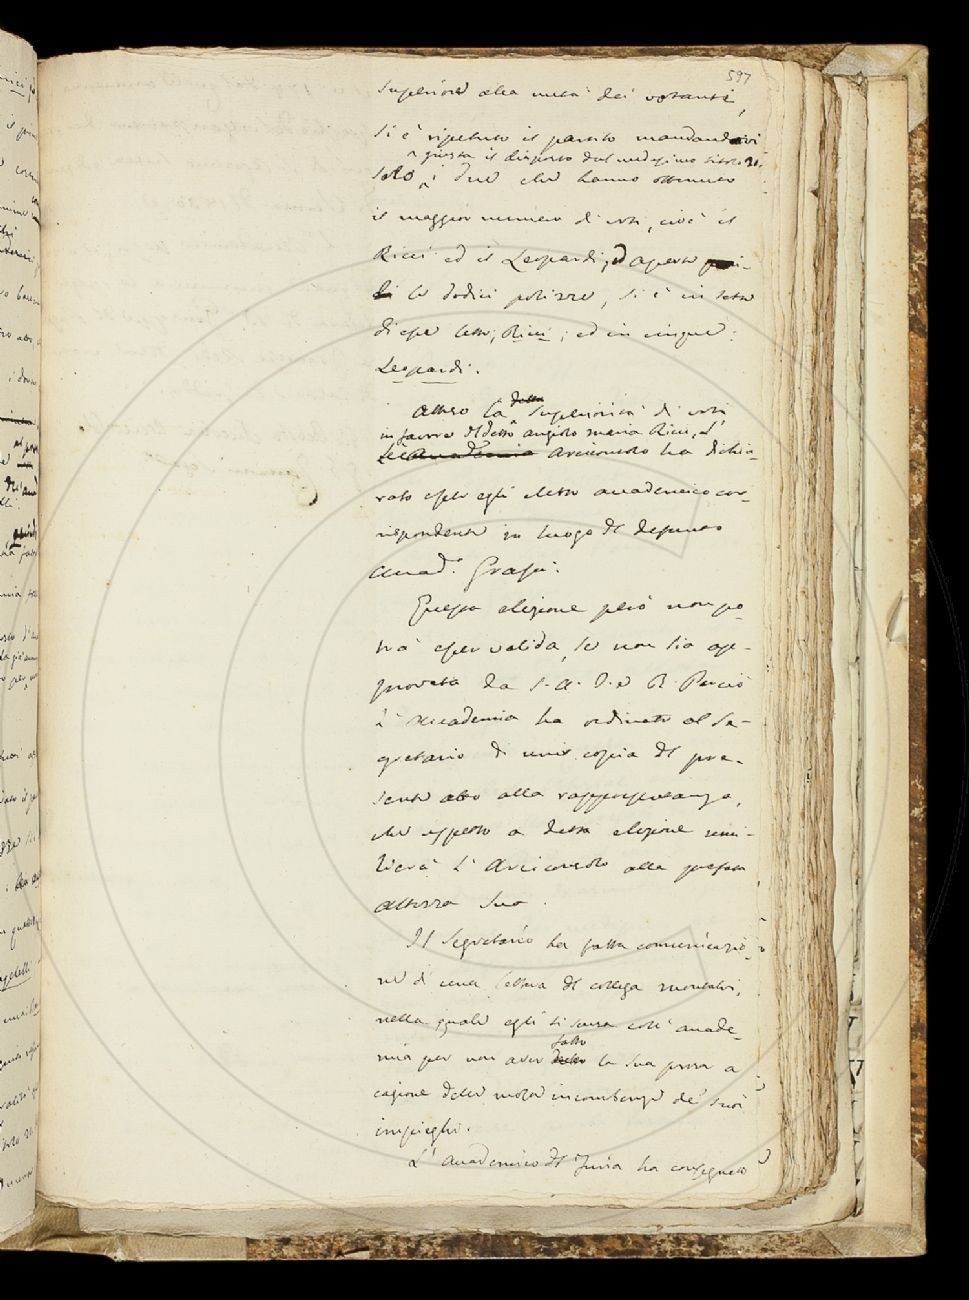 597
superiore alla metà dei votanti,
si è ripetuto il partito mandandovi
giusta il disposto del medesimo titolo 21.
solo i due che hanno ottenuto
il maggior numero di voti, cioè il
Ricci ed il Leopardi, ed aperte
le dodici polizze, si è in sette
di esse letto, Ricci; ed in cinque:
Leopardi.
detta
Atteso la superiorità di voti
in favore del detto Angiolo Maria Ricci, l'
Accademia Arciconsolo ha dichia-
rato esser egli eletto accademico cor-
rispondente in luogo del defunto
Accad.o Grassi.
Questa elezione però non po-
trà esser valida, se non sia ap-
provata da S. A. I. e R. Perciò
l'Accademia ha ordinato al Se-
gretario di unir copia del pre-
sente atto alla rappresentanza,
che rispetto a detta elezione umi-
lierà l'Arciconsolo alla prefata
Altezza Sua.
Il Segretario ha fatta comunicazio-
ne di una lettera del collega Montalvi,
nella quale egli si scusa coll'Accade-
fatto
mia per non aver la sua prosa a
cagione delle molte incombenze de' suoi
impieghi.
L'Accademico del Furia ha consegnato